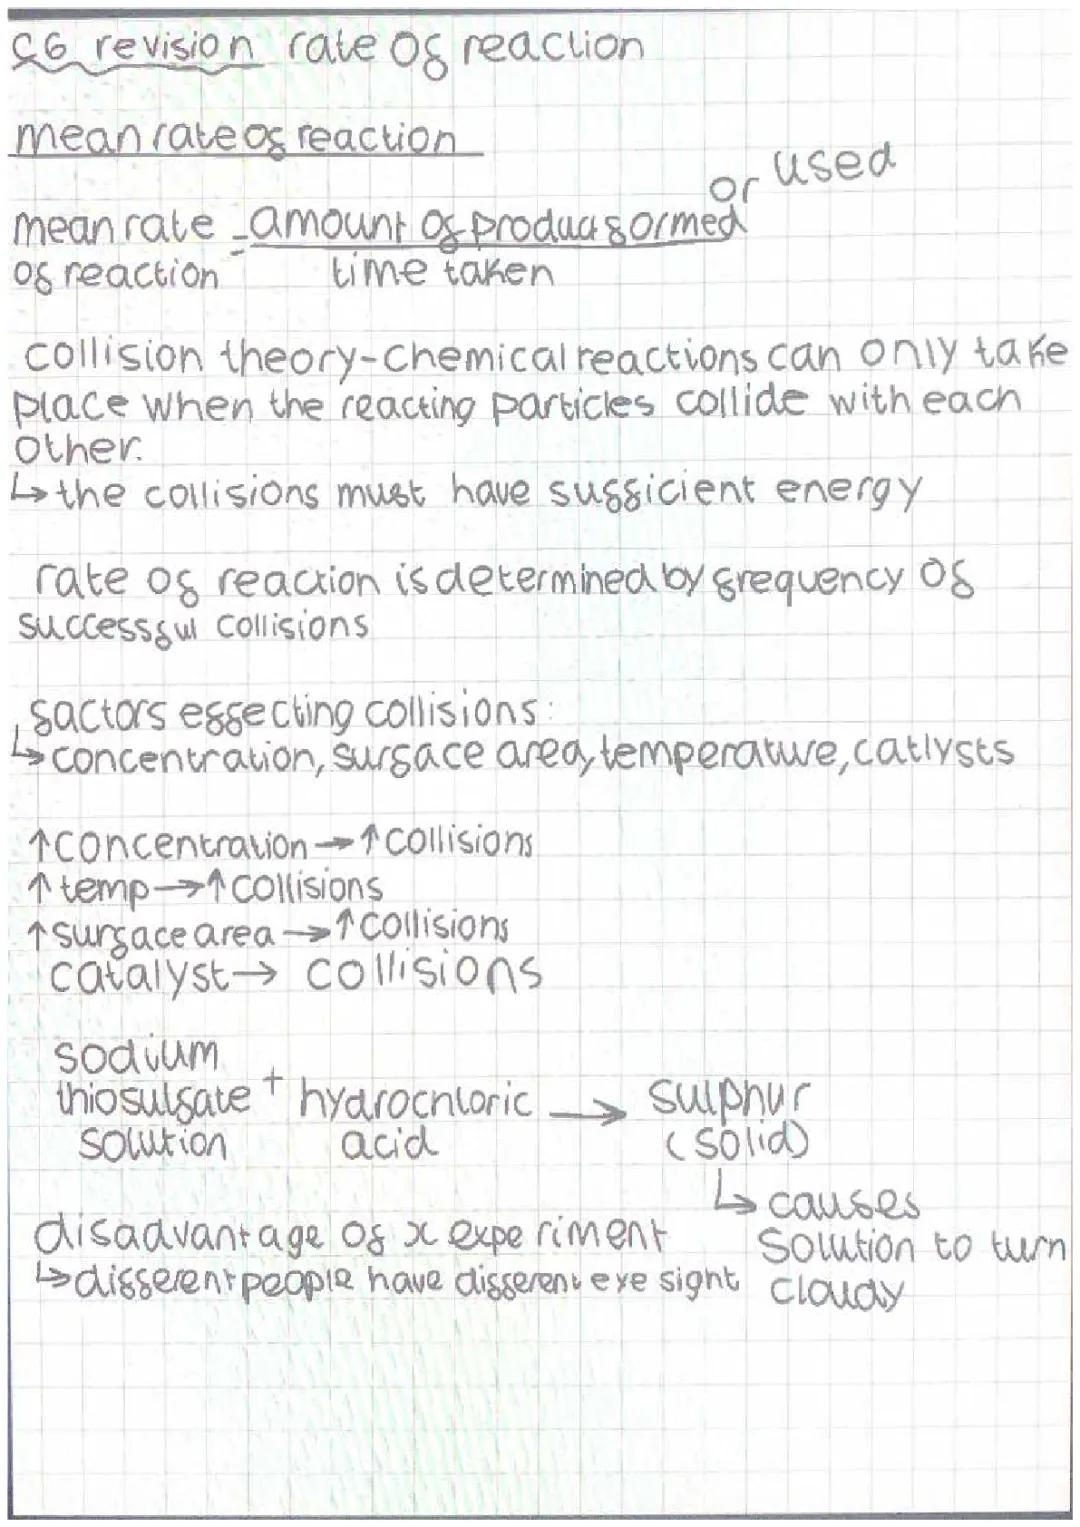 C6 revision rate of reaction
mean rate of reaction
or used
mean rate = amount of product formed
of reaction time taken
collision theory - chemical reactions can only take
place when the reacting particles collide with each
other.
↳ the collisions must have sufficient energy
rate of reaction is determined by frequency of
successful collisions
factors effecting collisions:
↳ concentration, surface area, temperature, catlysts
↑ concentration → ↑ collisions
↑ temp → ↑ collisions
↑ surface area → ↑ collisions
catalyst → collisions
sodium
thiosulfate + hydrochloric → sulphur
solution acid (solid)
↳ causes
disadvantage of x experiment solution to turn
↳ different people have different eye sight cloudy